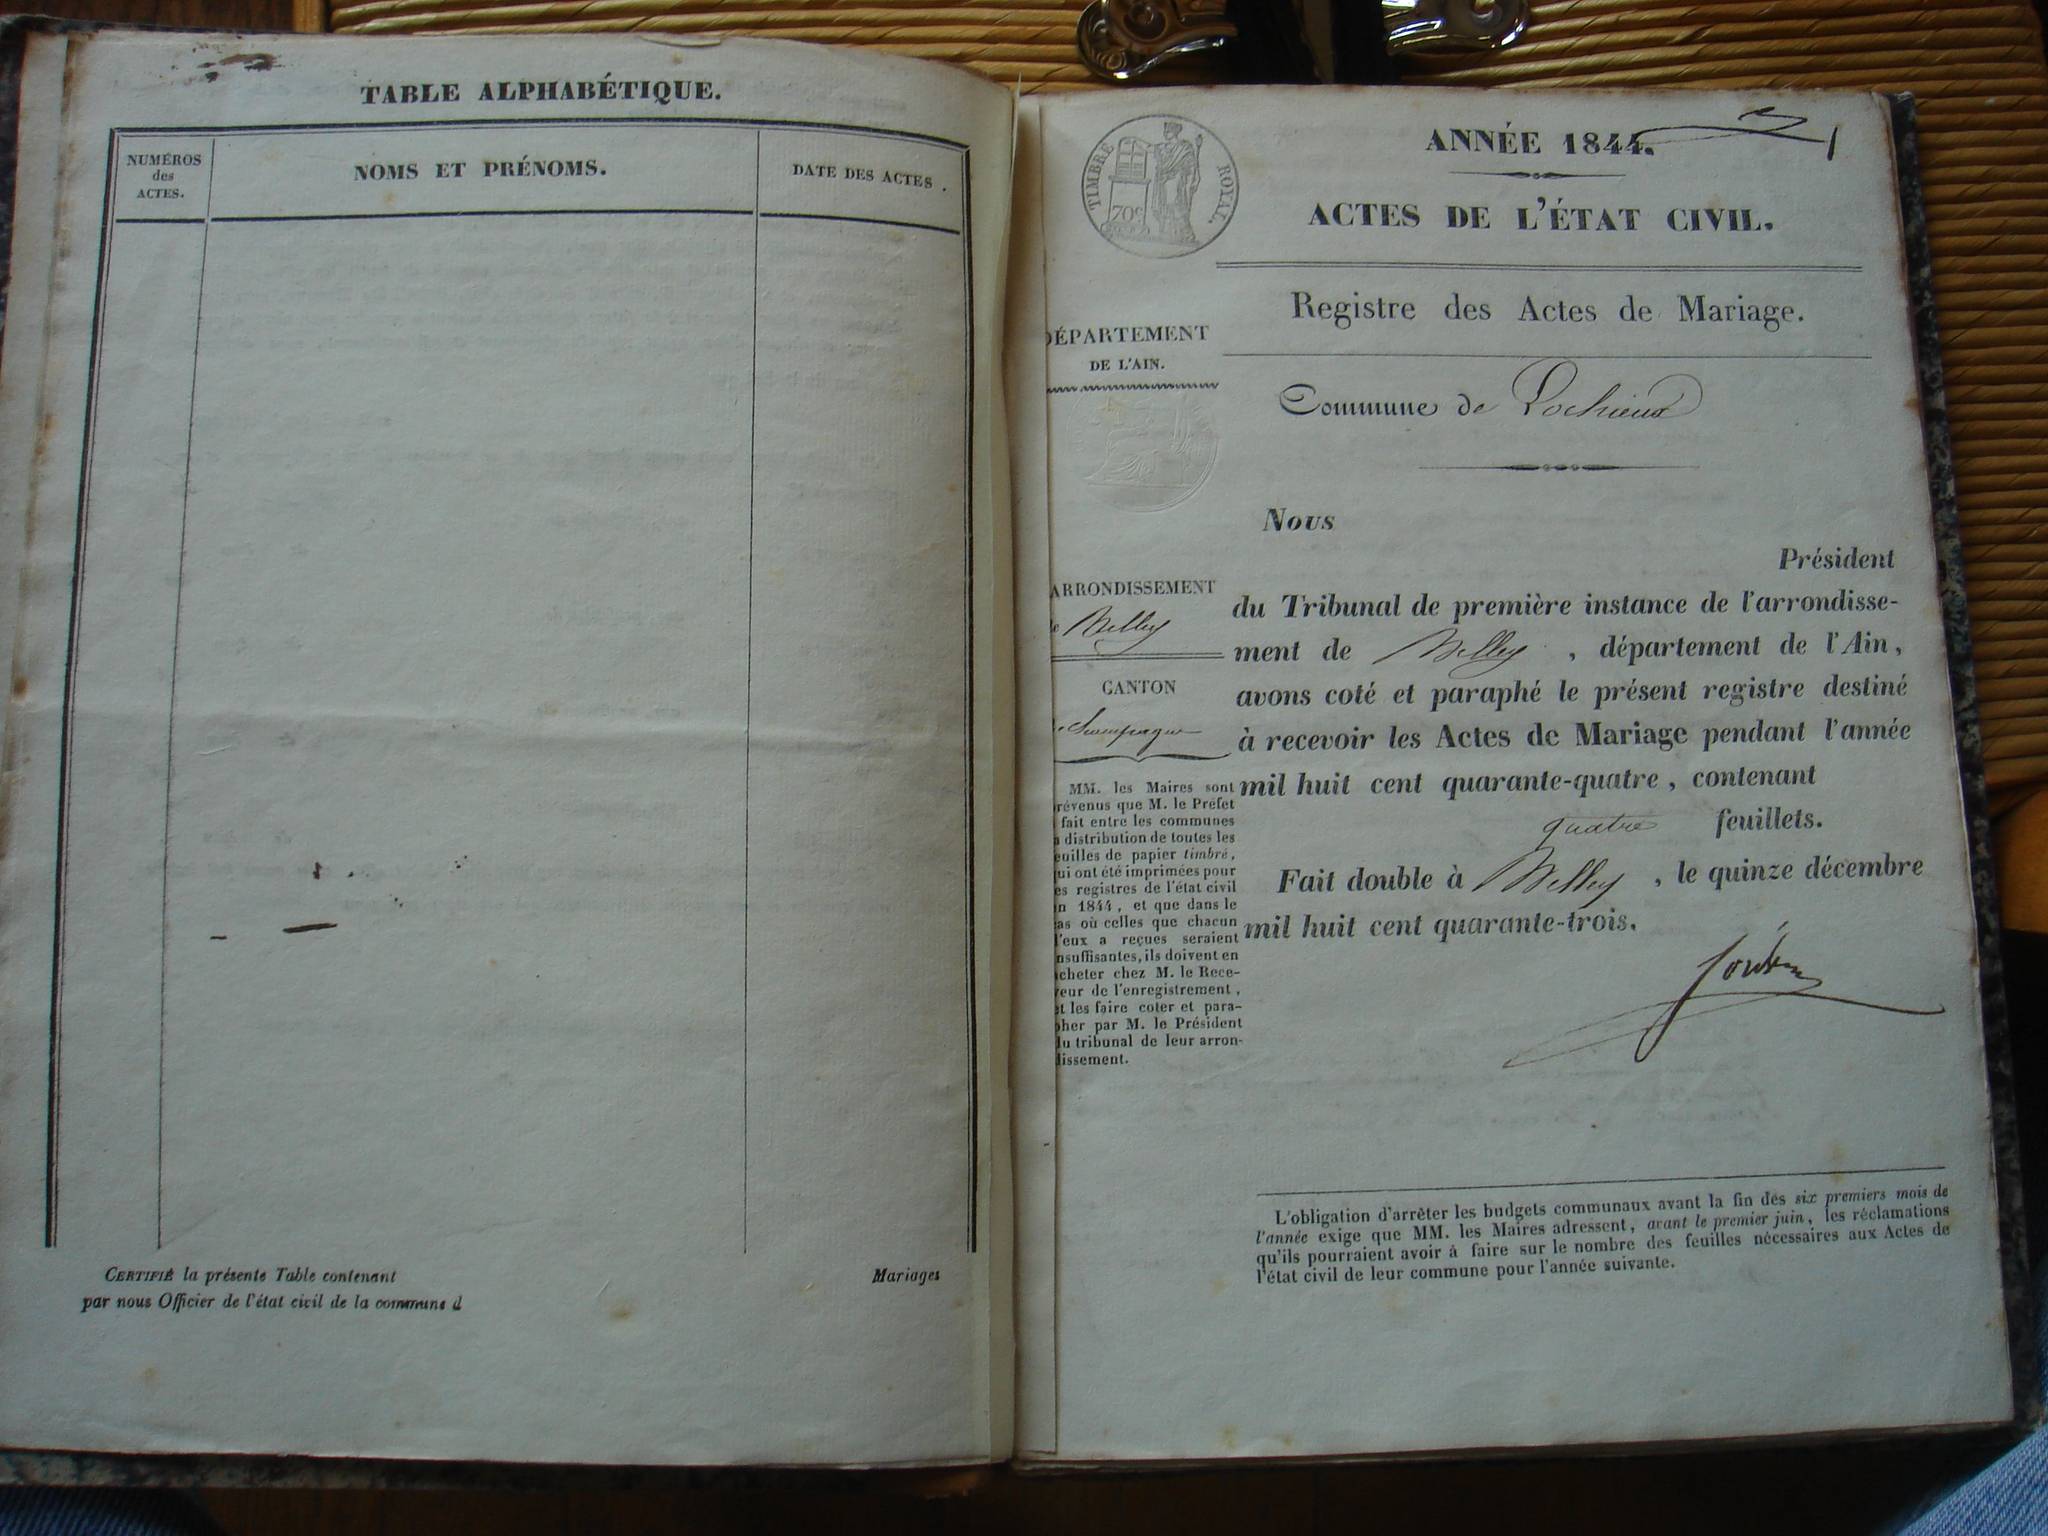 TABLE ALPHABÉTIQUE.
NUMÉROS
des
ACTES.
NOMS ET PRÉNOMS.
DATE DES ACTES.
CERTIFIÉ la présente Table contenant Mariages
par nous Officier de l'état civil de la commune d
TIMBRE ROYAL.
70c
ANNÉE 1844.
1
ACTES DE L'ÉTAT CIVIL.
Registre des Actes de Mariage.
DÉPARTEMENT
DE L'AIN.
Commune de Lochieux
ARRONDISSEMENT
de Belley
CANTON
de Champagne
MM. les Maires sont
prévenus que M. le Préfet
fait entre les communes
a distribution de toutes les
euilles de papier timbré,
ui ont été imprimées pour
es registres de l'état civil
n 1844, et que dans le
as où celles que chacun
d'eux a reçues seraient
nsuffisantes, ils doivent en
cheter chez M. le Rece-
veur de l'enregistrement,
et les faire coter et para-
pher par M. le Président
du tribunal de leur arron-
dissement.
Nous
Président
du Tribunal de première instance de l'arrondisse-
ment de Belley, département de l'Ain,
avons coté et paraphé le présent registre destiné
à recevoir les Actes de Mariage pendant l'année
mil huit cent quarante-quatre, contenant
quatre feuillets.
Fait double à Belley, le quinze décembre
mil huit cent quarante-trois.
L'obligation d'arrêter les budgets communaux avant la fin des six premiers mois de
l'année exige que MM. les Maires adressent, avant le premier juin, les réclamations
qu'ils pourraient avoir à faire sur le nombre des feuilles nécessaires aux Actes de
l'état civil de leur commune pour l'année suivante.